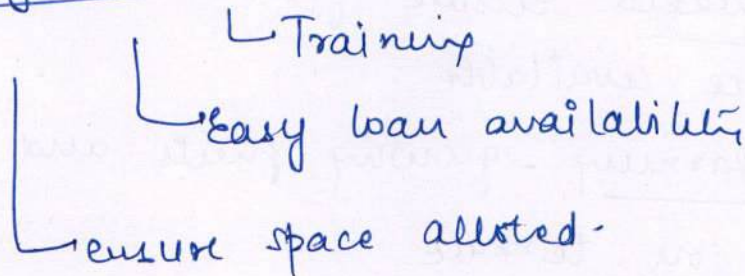 Training
Easy loan availability
ensure space alloted.